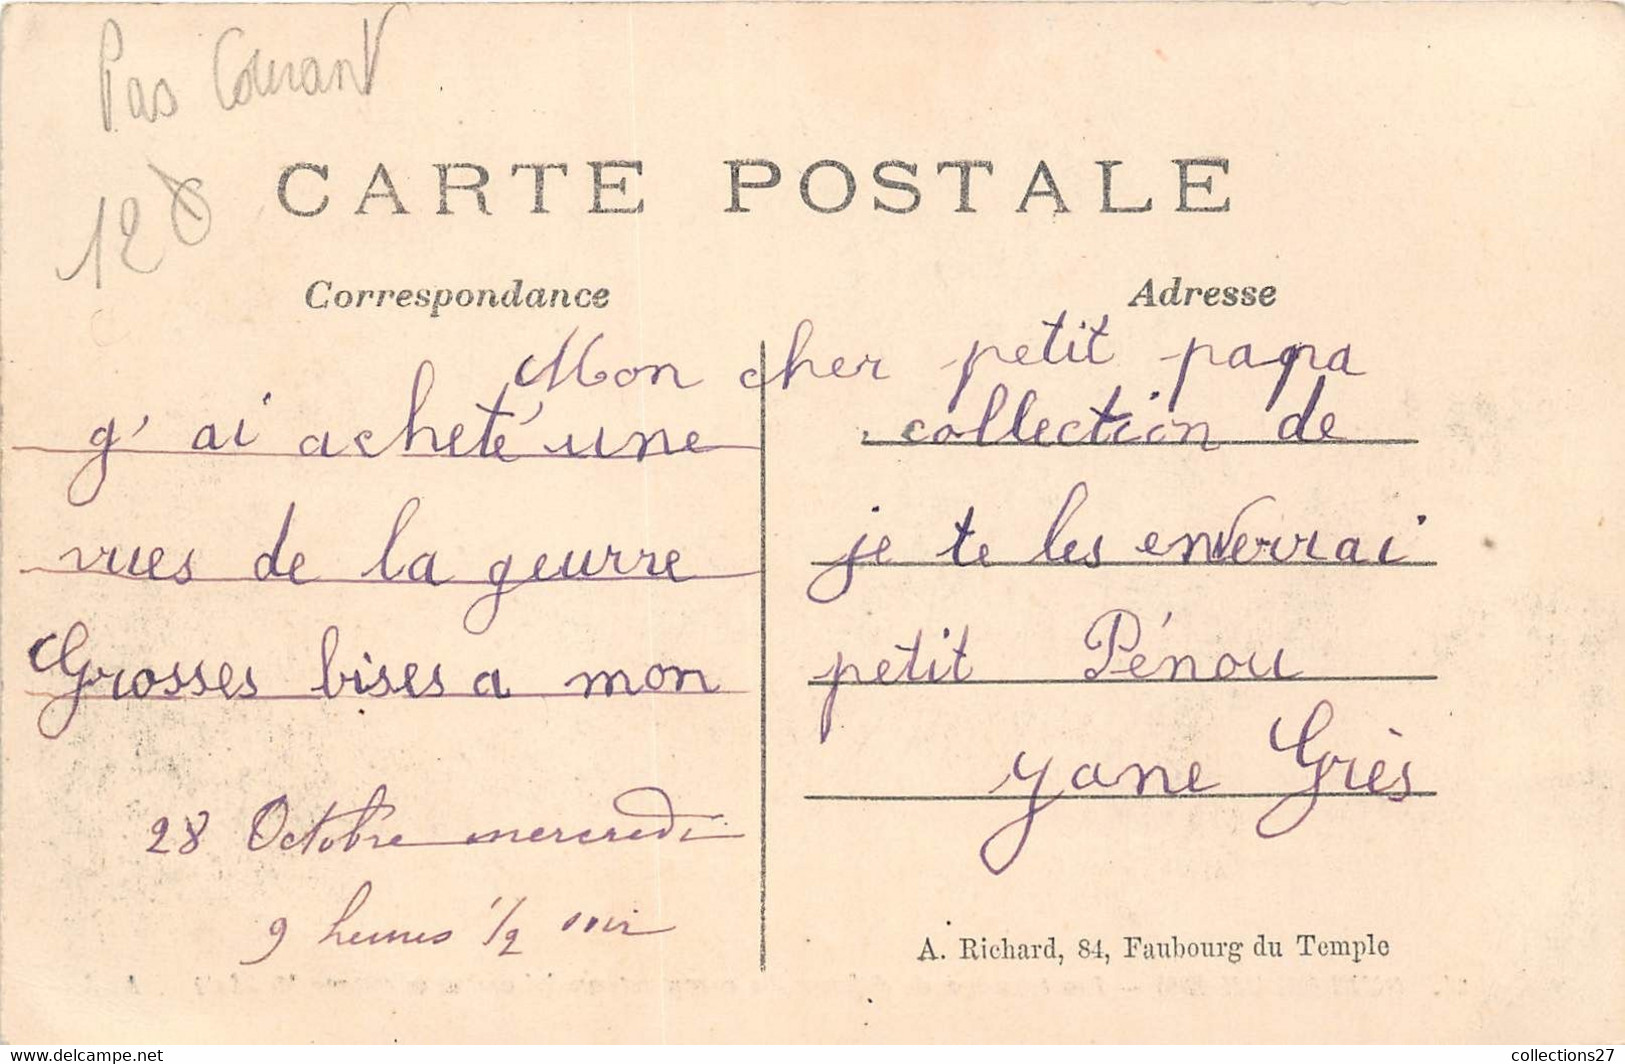 Pas Courant
12
CARTE POSTALE
Correspondance
Adresse
Mon cher petit papa
g' ai acheté une collection de
vues de la geurre je te les enverrai
Grosses bises a mon petit Pénou
yane Grès
28 Octobre mercredi
9 heures 1/2 soir
A. Richard, 84, Faubourg du Temple
collections27